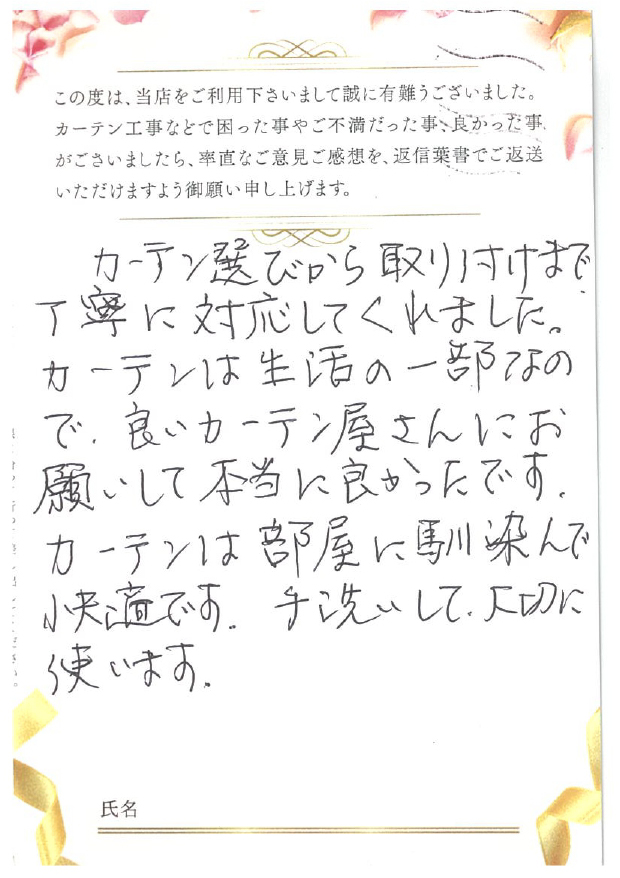 この度は、当店をご利用下さいまして誠に有難うございました。
カーテン工事などで困った事やご不満だった事、良かった事
がございましたら、率直なご意見ご感想を、返信葉書でご返送
いただけますよう御願い申し上げます。
カーテン選びから取り付けまで
丁寧に対応してくれました。
カーテンは生活の一部なの
で、良いカーテン屋さんにお
願いして本当に良かったです。
カーテンは部屋に馴染んで
快適です。手洗いして、大切に
使います。
氏名